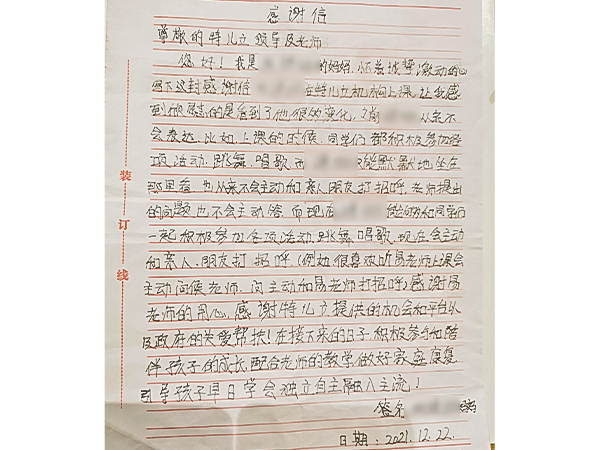 感谢信
尊敬的特儿立领导及老师
您好！我是 的妈妈，怀着诚挚激动的心
写下这封感谢信 在特儿立机构上课，让我感
到欣慰的是看到了他很的变化， 从来不
会表达，比如上课的时候，同学们都积极参加各
项活动，跳舞，唱歌，而 只能默默地坐在
那里看，也从来不会主动和亲人朋友打招呼，老师提出
的问题也不会主动答，而现在 能够和同学们
一起积极参加各项活动，跳舞，唱歌，现在会主动
和亲人、朋友打招呼（例如：很喜欢听易老师上课会
主动问候老师，向主动和易老师打招呼）感谢易
老师的用心，感谢特儿立提供的机会和平台以
及政府的关爱帮扶！在接下来的日子，积极参与和陪
伴孩子的成长，配合老师的教学做好家庭康复
引导孩子早日学会独立自主融入主流！
签名
日期：2021.12.22.
装
订
线